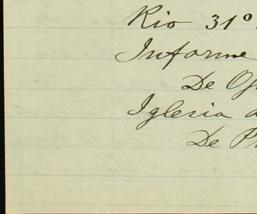 Rio 31º
Informe
De Of
Iglesia a
De Pr